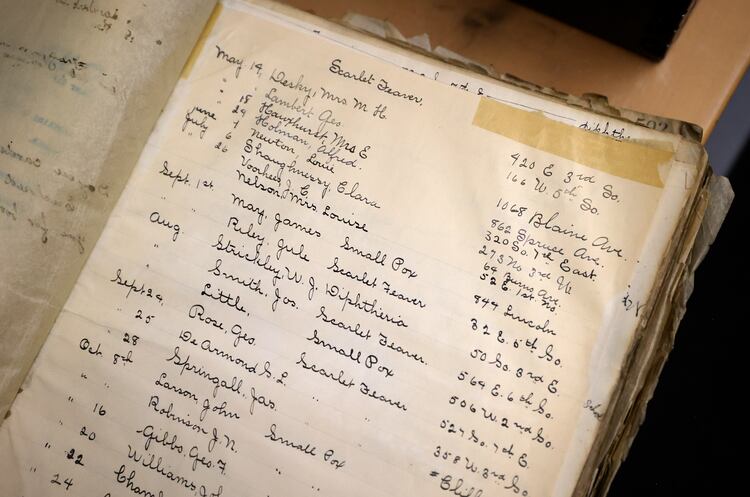 Scarlet Feaver,
May 14, Desky, Mrs M H. 420 E 3rd So.
" " Lambert Geo. 166 W. 5th So.
" 18 Hawhurst, Mrs E 1068 Blaine Ave.
June 29 Holman, Alfred. 862 Spruce Ave.
July 7 Newton, Louie 320 So. 7th East.
" 6 Shaughnessy, Clara 273 No. 3rd W.
26 Vorhees, J. C. 64 Ave.
Sept. 1st Nelson, Mrs. Louise
" " May, James Small Pox 844 Lincoln
Aug. Riley, Jule Scarlet Feaver 32 E. 5th So.
" Strickley, W. J. Diphtheria 50 So. 3rd E.
" Smith, Jos. Scarlet Feaver 564 E. 6th So.
Little, Small Pox 506 W. 2nd So.
Sept 24, Rose, Geo. Scarlet Feaver 527 So. 7th E.
" 25 De Armond S. L. " " 358 W. 3rd So.
" 28 Springall, Jas.
Oct 8th Larson John Small Pox
" " Robinson J. N. " "
" 16 Gibbs, Geo. F.
" 20 Williams
" 22
" 24